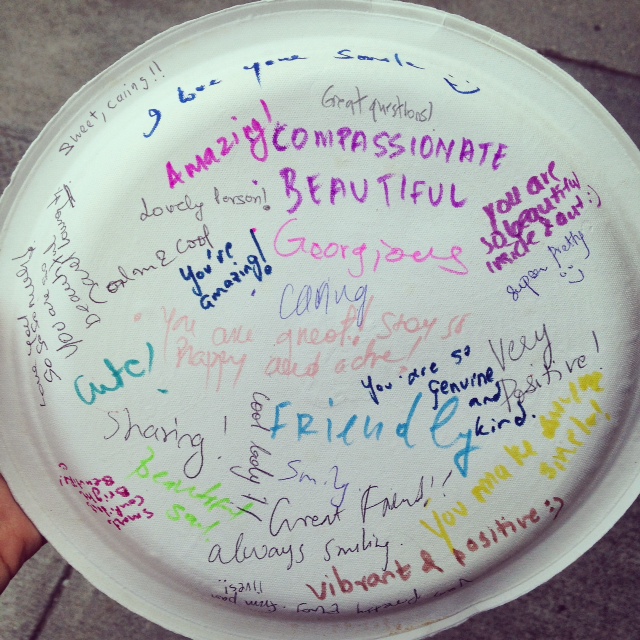 I love your smile
sweet, caring!!
Great questions!
Amazig!
COMPASSIONATE
Lovely Person!
BEAUTIFUL
you are
so beautiful
inside & out :)
Georgious
calm & cool
You're
amazing!
super pretty
caring
You are great! Stay so
happy and active!
You are so
beautiful
Cute!
You are so
Genuine
and
kind.
Very
Positive!
Sharing!
Cool lady!
FRiendly
Smily
Beautiful
Great Friend!!
You make
simple!
always smiling.
vibrant & positive :)